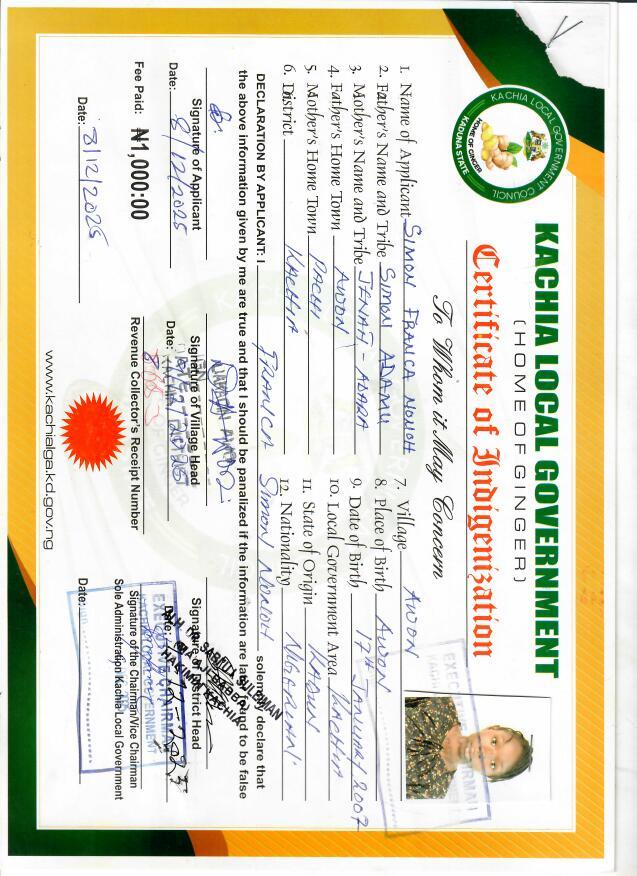 KACHIA LOCAL GOVERNMENT
(HOME OF GINGER)
Certificate of Indigenization
To Whom it May Concern
KACHIA LOCAL GOVERNMENT COUNCIL
HOME OF GINGER
KADUNA STATE
1. Name of Applicant SIMON FRANCA NONOH
2. Father's Name and Tribe SIMON ADAMU
3. Mother's Name and Tribe
4. Father's Home Town AWON
5. Mother's Home Town
6. District KACHIA
7. Village AWON
8. Place of Birth AWON
9. Date of Birth 17th JANUARY 2007
10. Local Government Area KACHIA
11. State of Origin KADUNA
12. Nationality NIGERIAN
DECLARATION BY APPLICANT: I FRANCA SIMON NONOH solemnly declare that
the above information given by me are true and that I should be panalized if the information are later found to be false
Signature of Applicant
Date: 8/12/2025
Signature of Village Head
Date:
Signature of District Head
Date:
Fee Paid: ₦1,000:00
Revenue Collector's Receipt Number
Signature of the Chairman/Vice Chairman
Sole Administration Kachia Local Government
Date: 3/12/2025
Date:
www.kachialga.kd.gov.ng